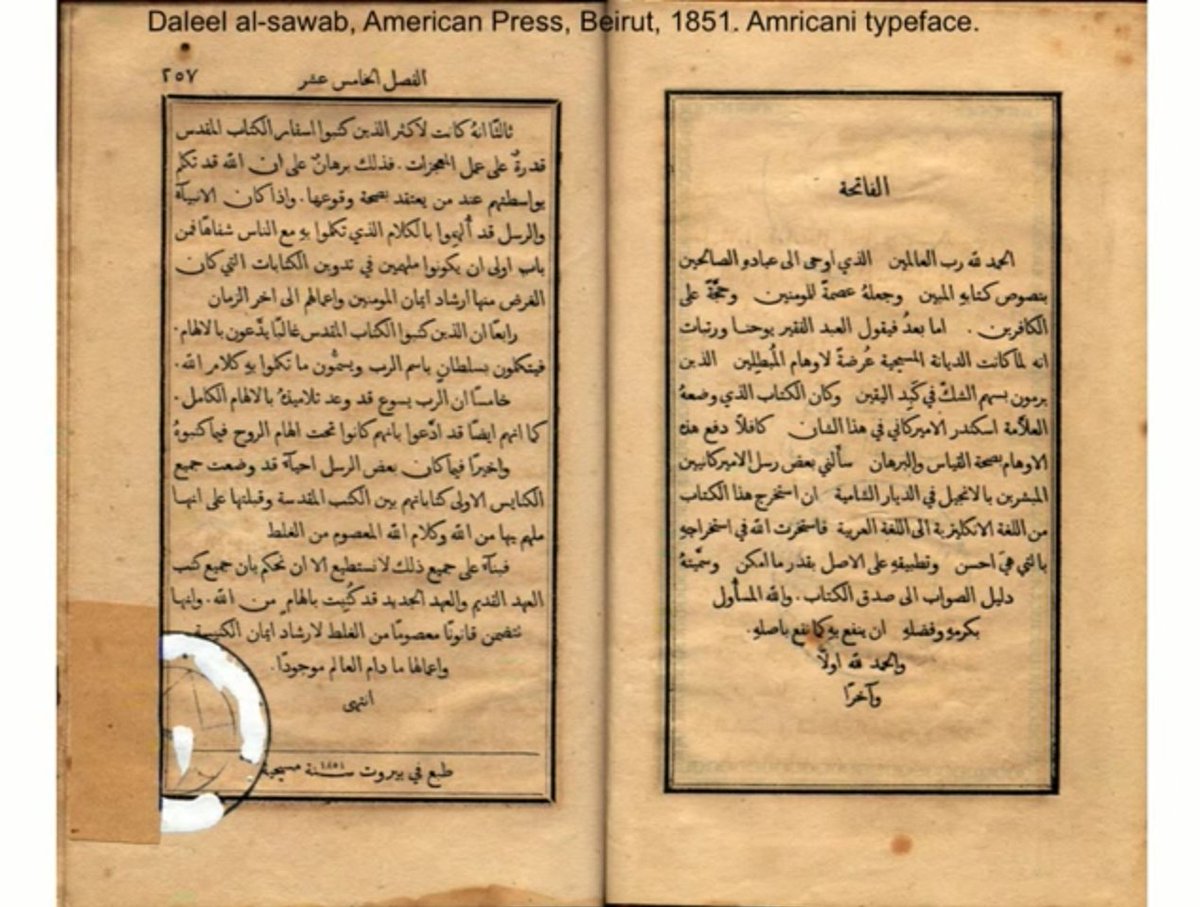 Daleel al-sawab, American Press, Beirut, 1851. Amricani typeface.
الفاتحة
الحمد لله رب العالمين الذي اوحى الى عبادهِ الصالحين
بنصوص كتابهِ المبين وجعلهُ عصمةً للمومنين وحجَّةً على
الكافرين . اما بعدُ فيقول العبد الفقير يوحنا ورتبات
انه لما كانت الديانة المسيحية عُرضةً لاوهام المُبطِلين الذين
يرمون بسهم الشك في كَبِد اليقين وكان الكتاب الذي وضعهُ
العلَّامة اسكندر الاميركاني في هذا الشان كافلًا دفع هذه
الاوهام بصحة القياس والبرهان سألني بعض رسل الاميركانيين
المبشرين بالانجيل في الديار الشامية ان استخرج هذا الكتاب
من اللغة الانكليزية الى اللغة العربية فاستخرت الله في استخراجهِ
بالتي هي احسن وتطبيقهِ على الاصل بقدر ما امكن وسمَّيتهُ
دليل الصواب الى صدق الكتاب . والله المسأُول
بكرمهِ وفضلهِ ان ينفع بهِ كما نفع باصلهِ .
والحمد لله اولًا
وآخرًا
الفصل الخامس عشر ٢٥٧
ثالثًا انهُ كانت لاكثر الذين كتبوا اسفار الكتاب المقدس
قدرةٌ على عمل المعجزات . فذلك برهانٌ على ان الله قد تكلم
بواسطتهم عند من يعتقد بصحة وقوعها . واذا كان الانبيآء
والرسل قد أُلهِموا بالكلام الذي تكلموا بهِ مع الناس شفاهًا فمن
باب اولى ان يكونوا ملهمين في تدوين الكتابات التي كان
الغرض منها ارشاد ايمان المومنين واعمالهم الى اخر الزمان
رابعًا ان الذين كتبوا الكتاب المقدس غالبًا يدَّعون بالالهام .
فيتكلمون بسلطانٍ باسم الرب ويسمُّون ما تكلموا بهِ كلام الله .
خامسًا ان الرب يسوع قد وعد تلاميذهُ بالالهام الكامل .
كما انهم ايضًا قد ادَّعوا بانهم كانوا تحت الهام الروح فيما كتبوهُ
واخيرًا فيما كان بعض الرسل احيآء قد وضعت جميع
الكنايس الاولى كتاباتهم بين الكتب المقدسة وقبلتها على انها
ملهم بها من الله وكلام الله المعصوم من الغلط
فبنآء على جميع ذلك لا نستطيع الا ان نحكم بان جميع كتب
العهد القديم والعهد الجديد قد كُتِبت بالهامٍ من الله . وانها
تتضمن قانونًا معصومًا من الغلط لارشاد ايمان الكنيسة
واعمالها ما دام العالم موجودًا .
انتهى
طبع في بيروت سنة ١٨٥١ مسيحية